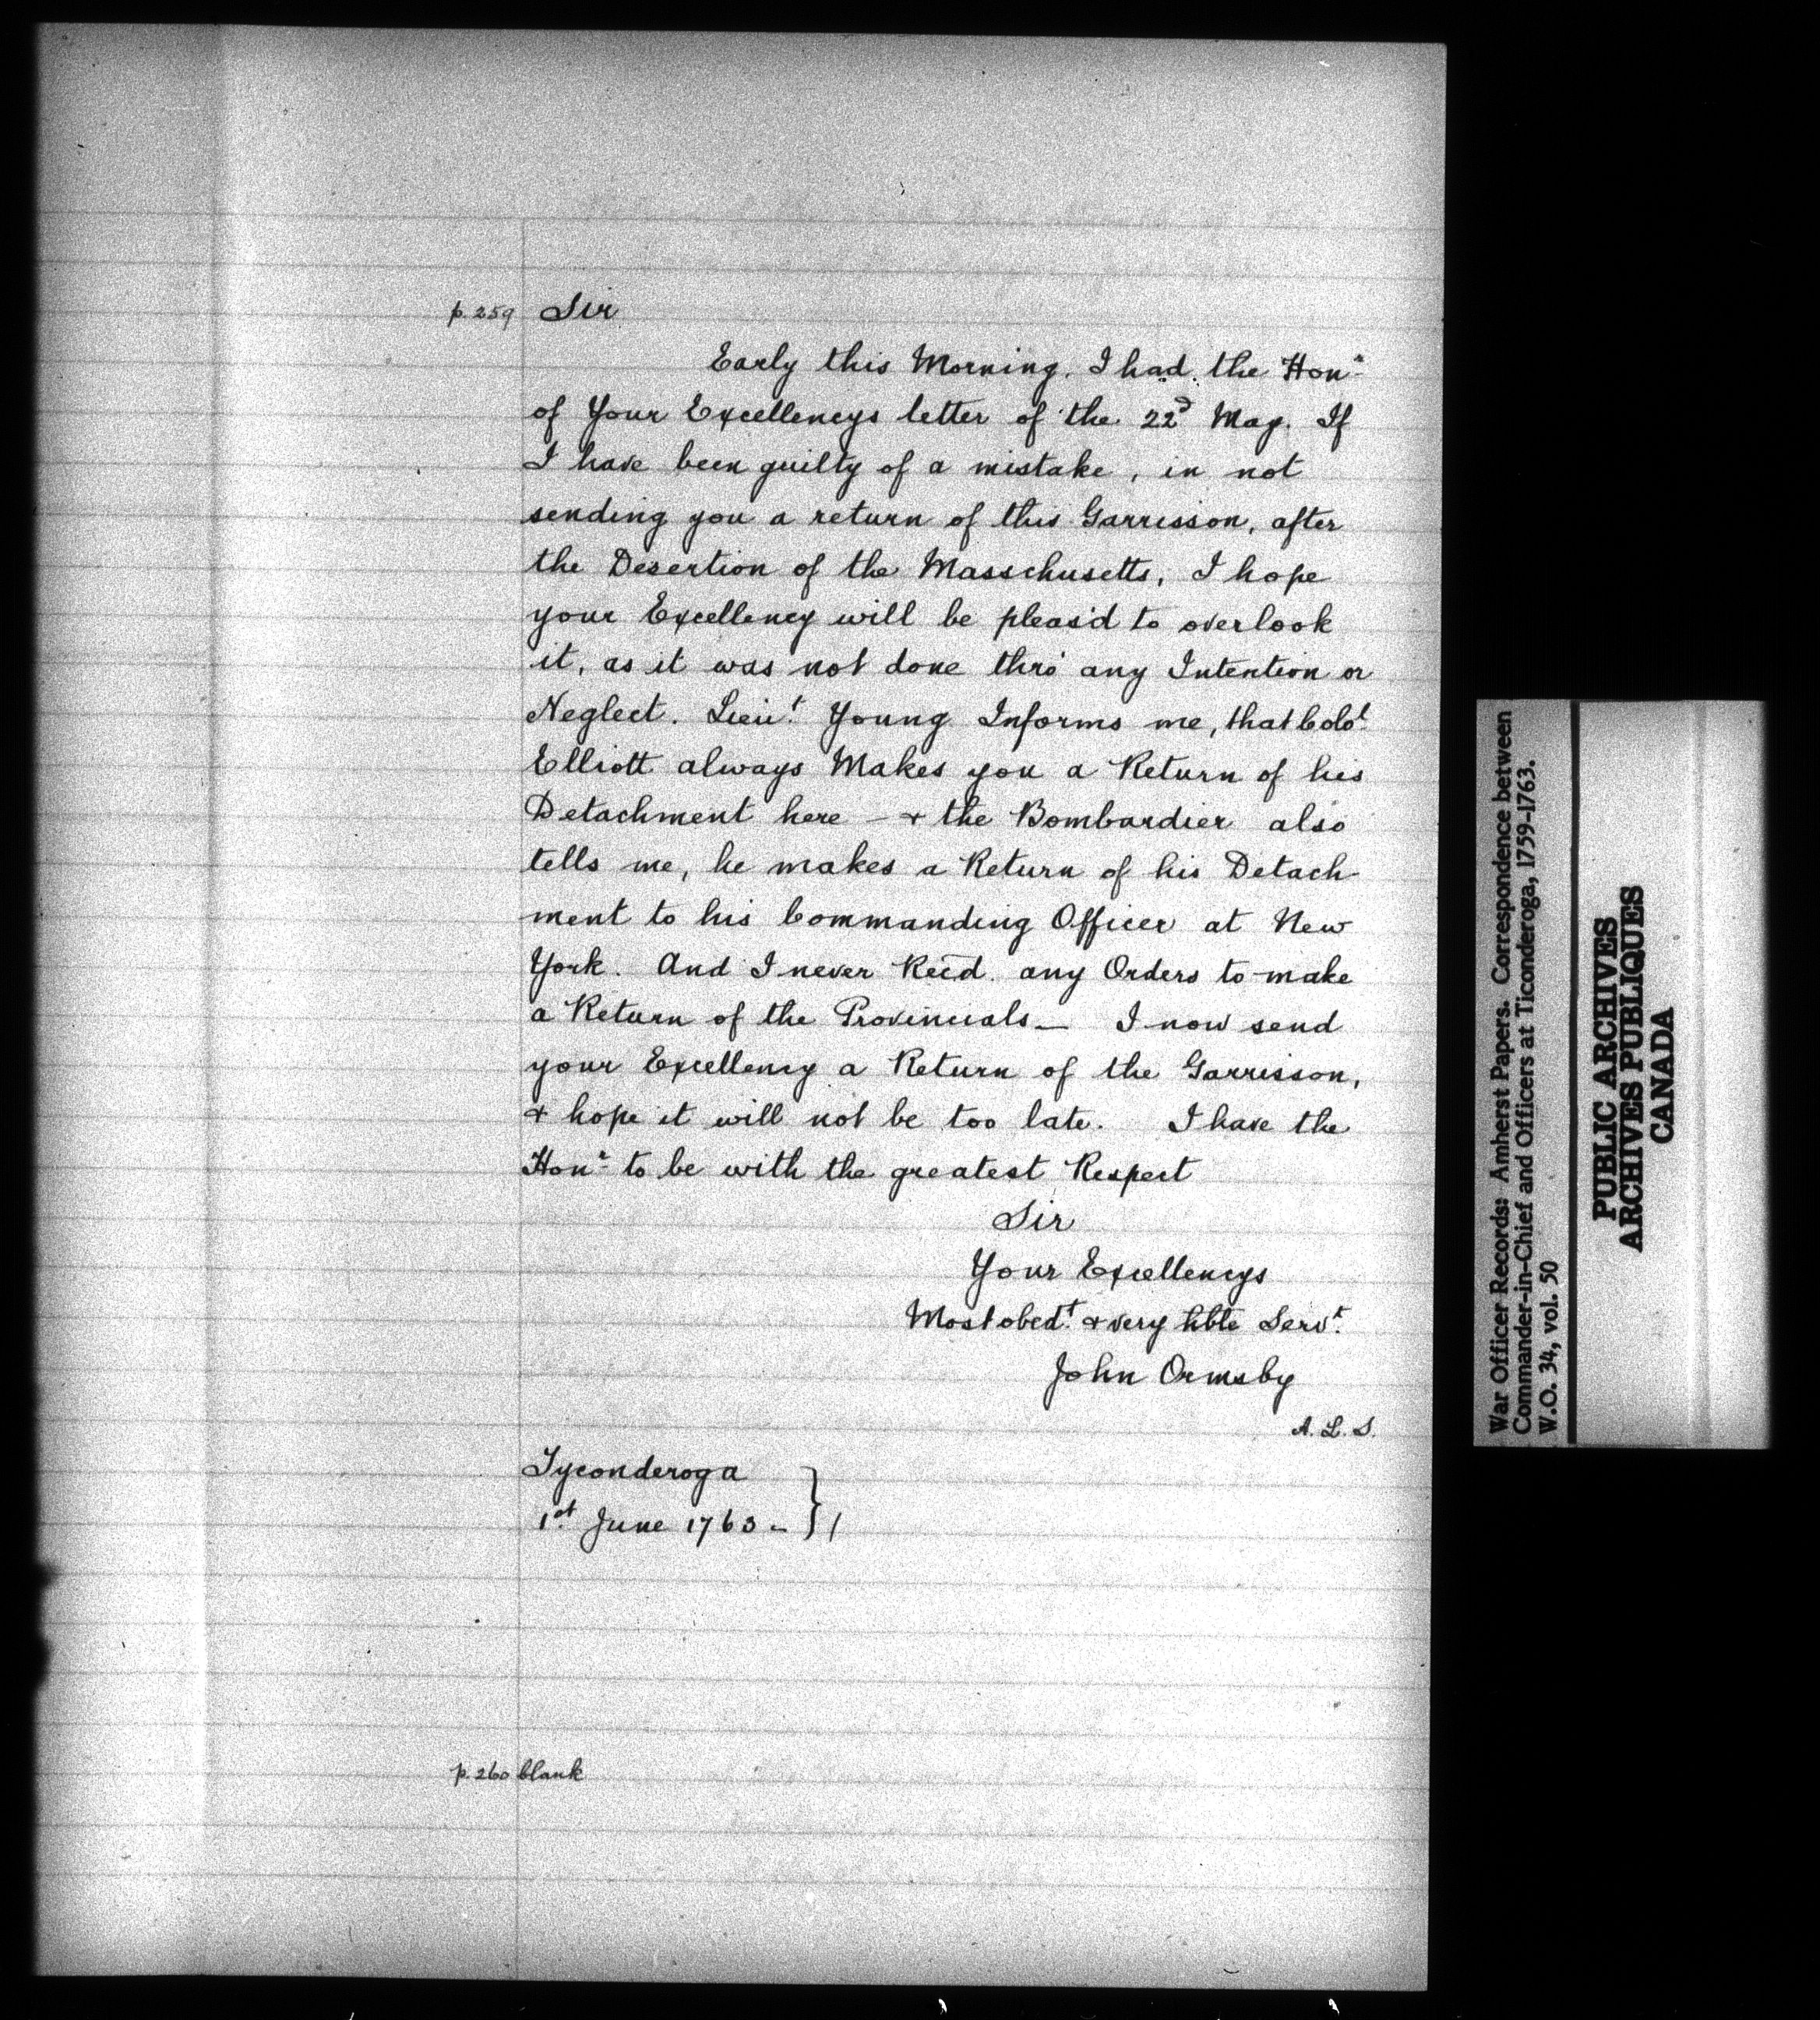 p. 259 Sir
Early this Morning. I had the Honr
of Your Excellencys letter of the 22d May. If
I have been guilty of a mistake, in not
sending you a return of this Garrisson, after
the Desertion of the Masschusetts, I hope
your Excellency will be pleas'd to overlook
it, as it was not done thro' any Intention or
Neglect. Lieut. Young Informs me, that Colo!
Elliott always Makes you a Return of his
Detachment here — & the Bombardier also
tells me, he makes a Return of his Detach-
ment to his Commanding Officer at New
York. And I never Rec'd. any Orders to make
a Return of the Provincials — I now send
your Excellency a Return of the Garrisson,
& hope it will not be too late. I have the
Honr to be with the greatest Respect
Sir
Your Excellencys
Most obedt. & very hble Servt.
John Ormsby
A. L. S.
Tyconderoga
1st. June 1763 - } /
p. 260 blank
War Officer Records: Amherst Papers. Correspondence between
Commander-in-Chief and Officers at Ticonderoga, 1759-1763.
W.O. 34, vol. 50
PUBLIC ARCHIVES
ARCHIVES PUBLIQUES
CANADA